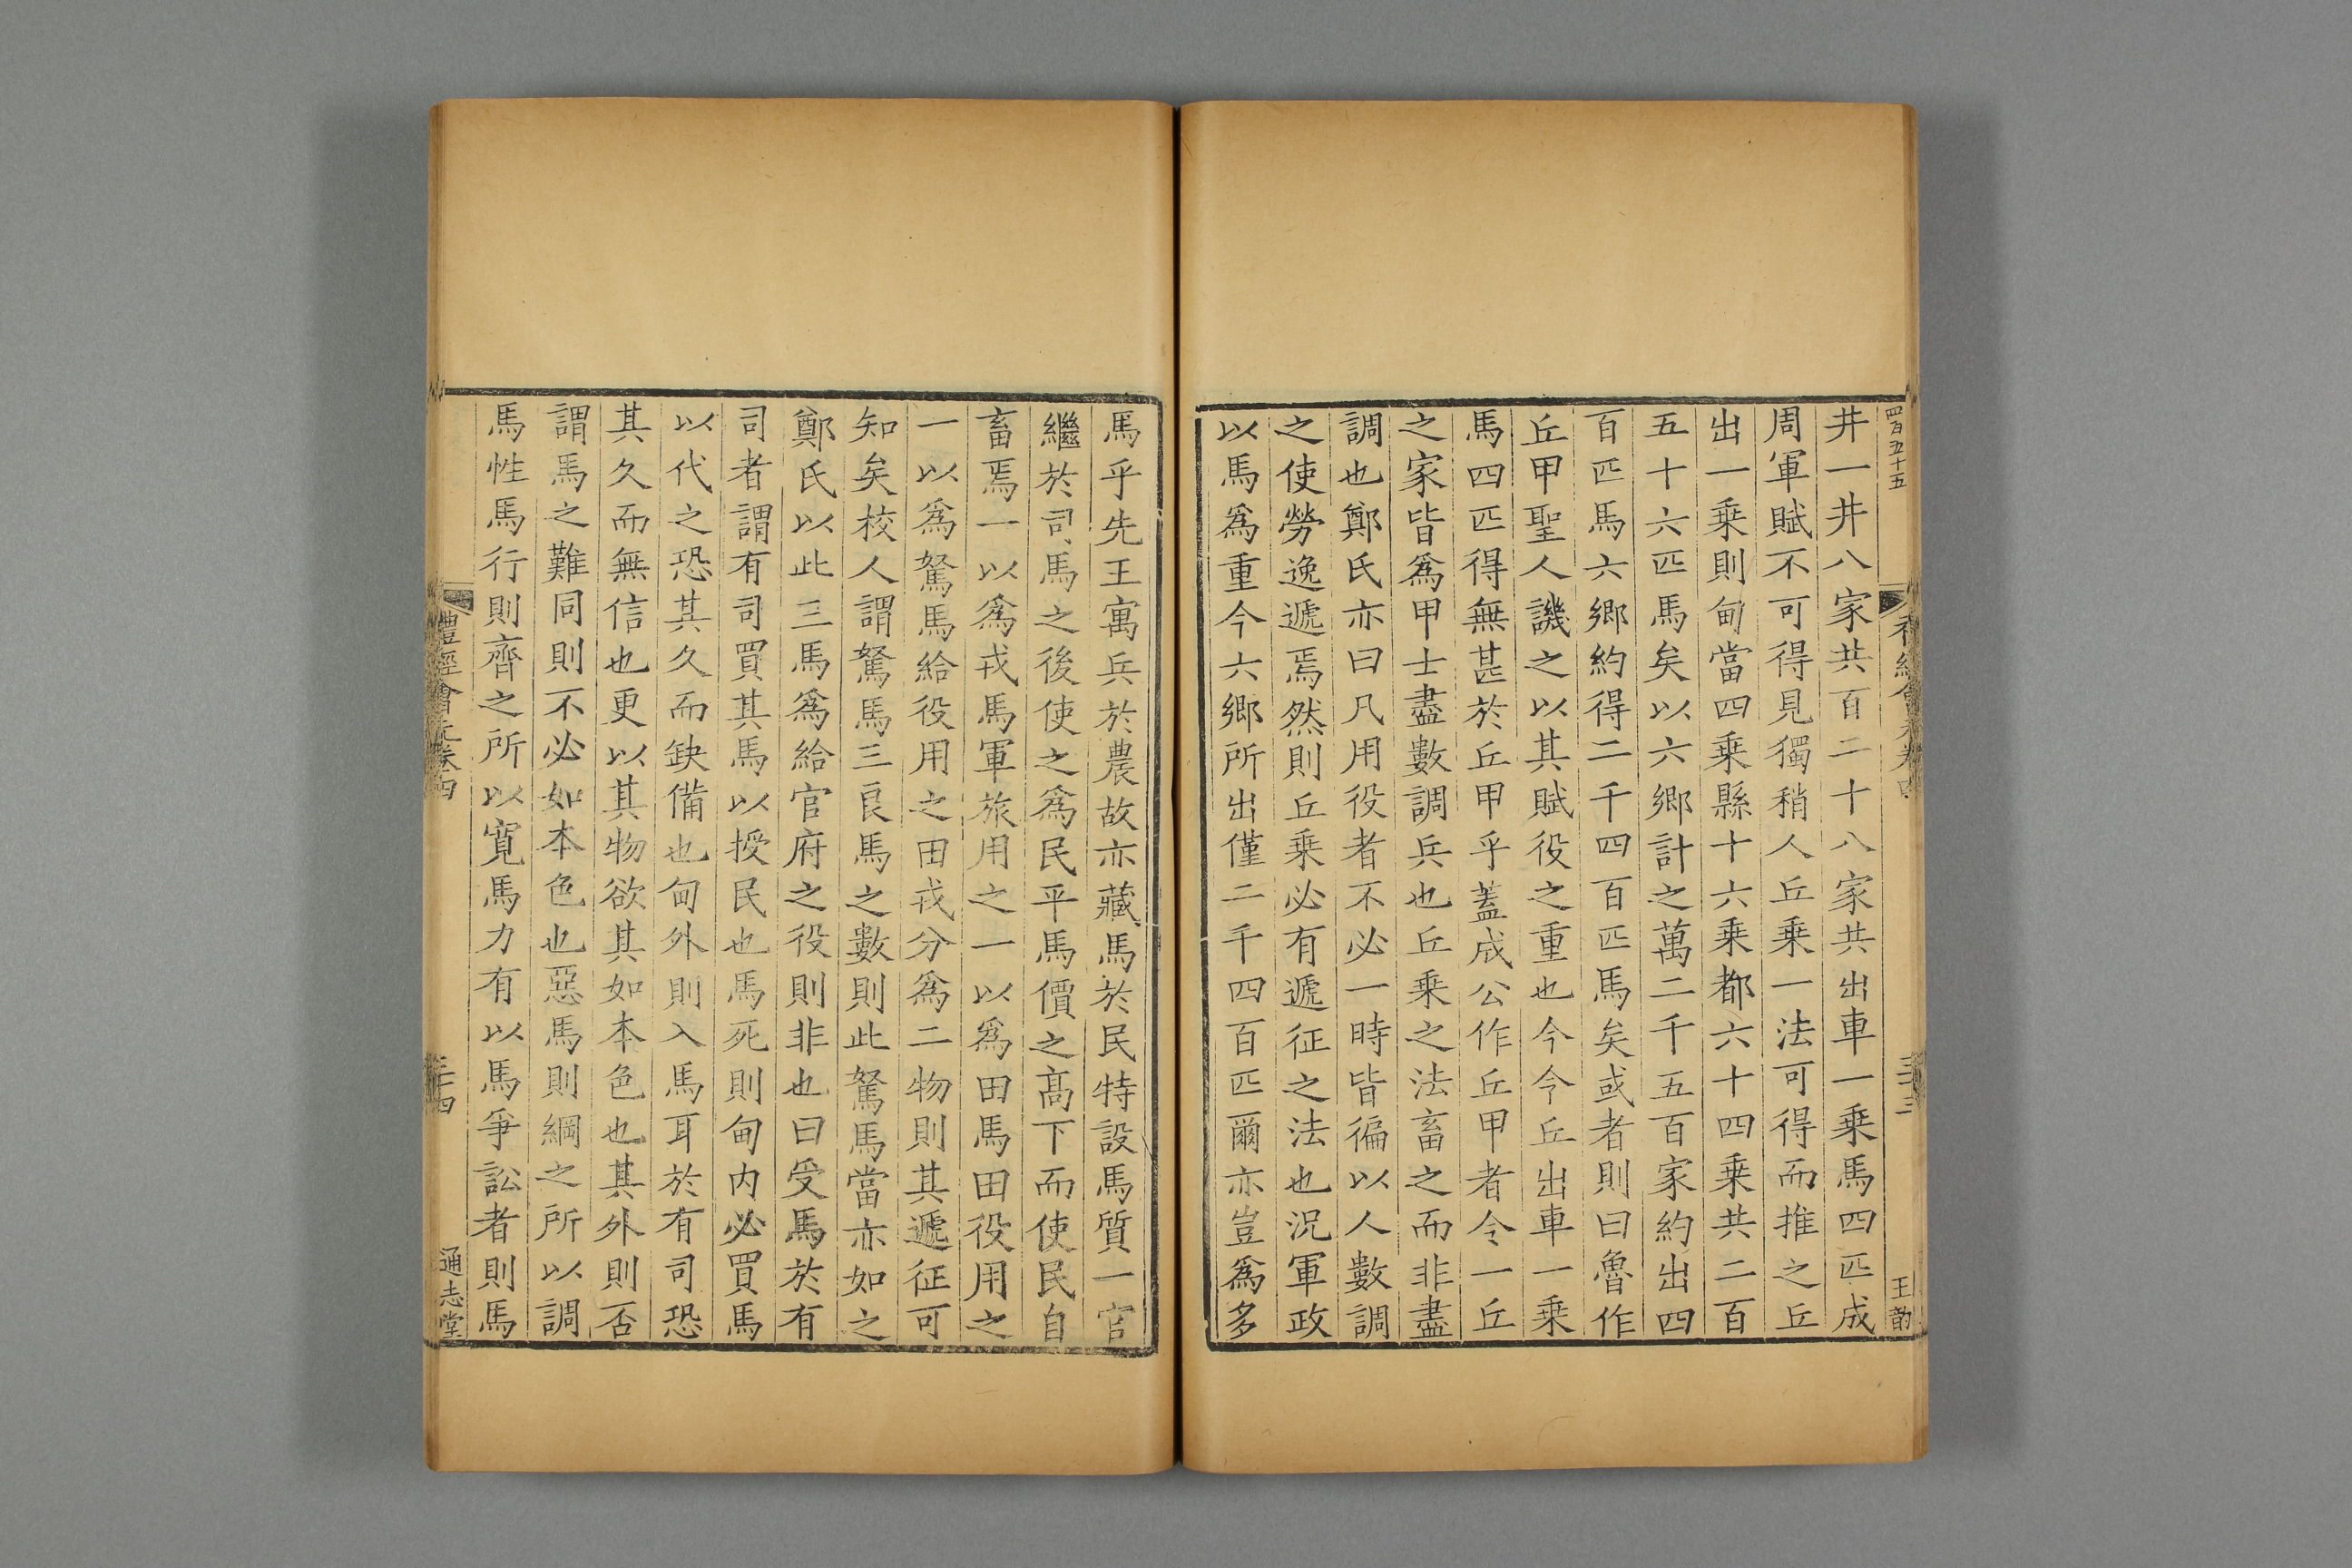 四百五十五
王
井一井八家共百二十八家共出車一乗馬四匹成
周軍賦不可得見獨稍人丘乗一法可得而推之丘
出一乗則甸當四乗縣十六乗都六十四乗共二百
五十六匹馬矣以六鄉計之萬二千五百家約出四
百匹馬六鄉約得二千四百匹馬矣或者則曰魯作
丘甲聖人譏之以其賦役之重也今令丘出車一乗
馬四匹得無甚於丘甲乎蓋成公作丘甲者令一丘
之家皆爲甲士盡數調兵也丘乗之法畜之而非盡
調也鄭氏亦曰凡用役者不必一時皆徧以人數調
之使勞逸遞焉然則丘乗必有遞征之法也況軍政
以馬爲重今六鄉所出僅二千四百匹爾亦豈爲多
馬乎先王寓兵於農故亦藏馬於民特設馬質一官
繼於司馬之後使之爲民平馬價之髙下而使民自
畜焉一以爲戎馬軍旅用之一以爲田馬田役用之
一以爲駑馬給役用之田戎分爲二物則其遞征可
知矣校人謂駑馬三良馬之數則此駑馬當亦如之
鄭氏以此三馬爲給官府之役則非也曰受馬於有
司者謂有司買其馬以授民也馬死則甸内必買馬
以代之恐其久而缺備也甸外則入馬耳於有司恐
其久而無信也更以其物欲其如本色也其外則否
謂馬之難同則不必如本色也惡馬則綱之所以調
馬性馬行則齊之所以寛馬力有以馬爭訟者則馬
禮經會元卷四
三十四
通志堂